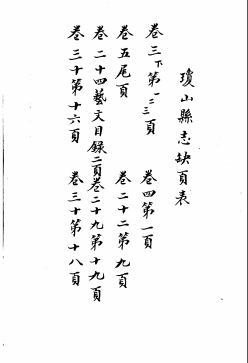 瓊山縣志缺頁表
卷三下第一二三頁
卷四第一頁
卷五尾頁
卷二十二第九頁
卷二十四藝文目錄二頁
卷二十九第十九頁
卷三十第十六頁
卷三十第十八頁